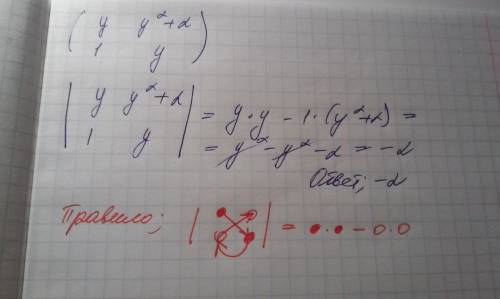 ( y y²+2
1 y )
| y y²+2
1 y | = y·y - 1·(y²+2) =
= y² - y² - 2 = -2
Ответ; -2
Правило; | | = •·• - o·o